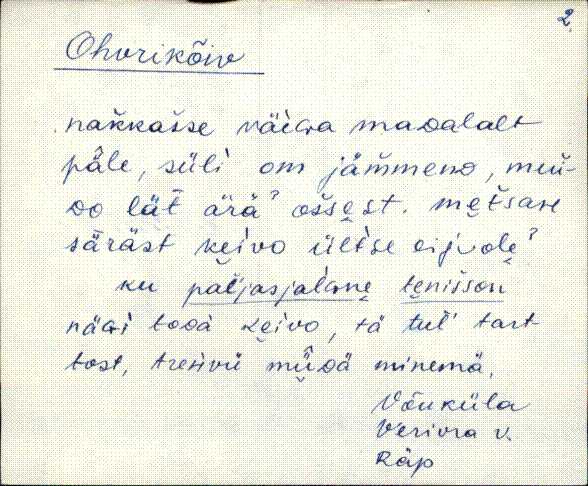 2.
Ohvrikõiv
nakkasse väiɢa maᴅalalt
pǟle, süli om jämmeᴅ, muu-
ᴅo lät ärä? ossest. metsan
säräst keivo ültse eijvole?
ku paljasjalɢne tenisson
näɢi tooᴅ keivo, tä tul' tart-
tost,
müüᴅä minemä.
Võuküla
Veriora v.
Räp